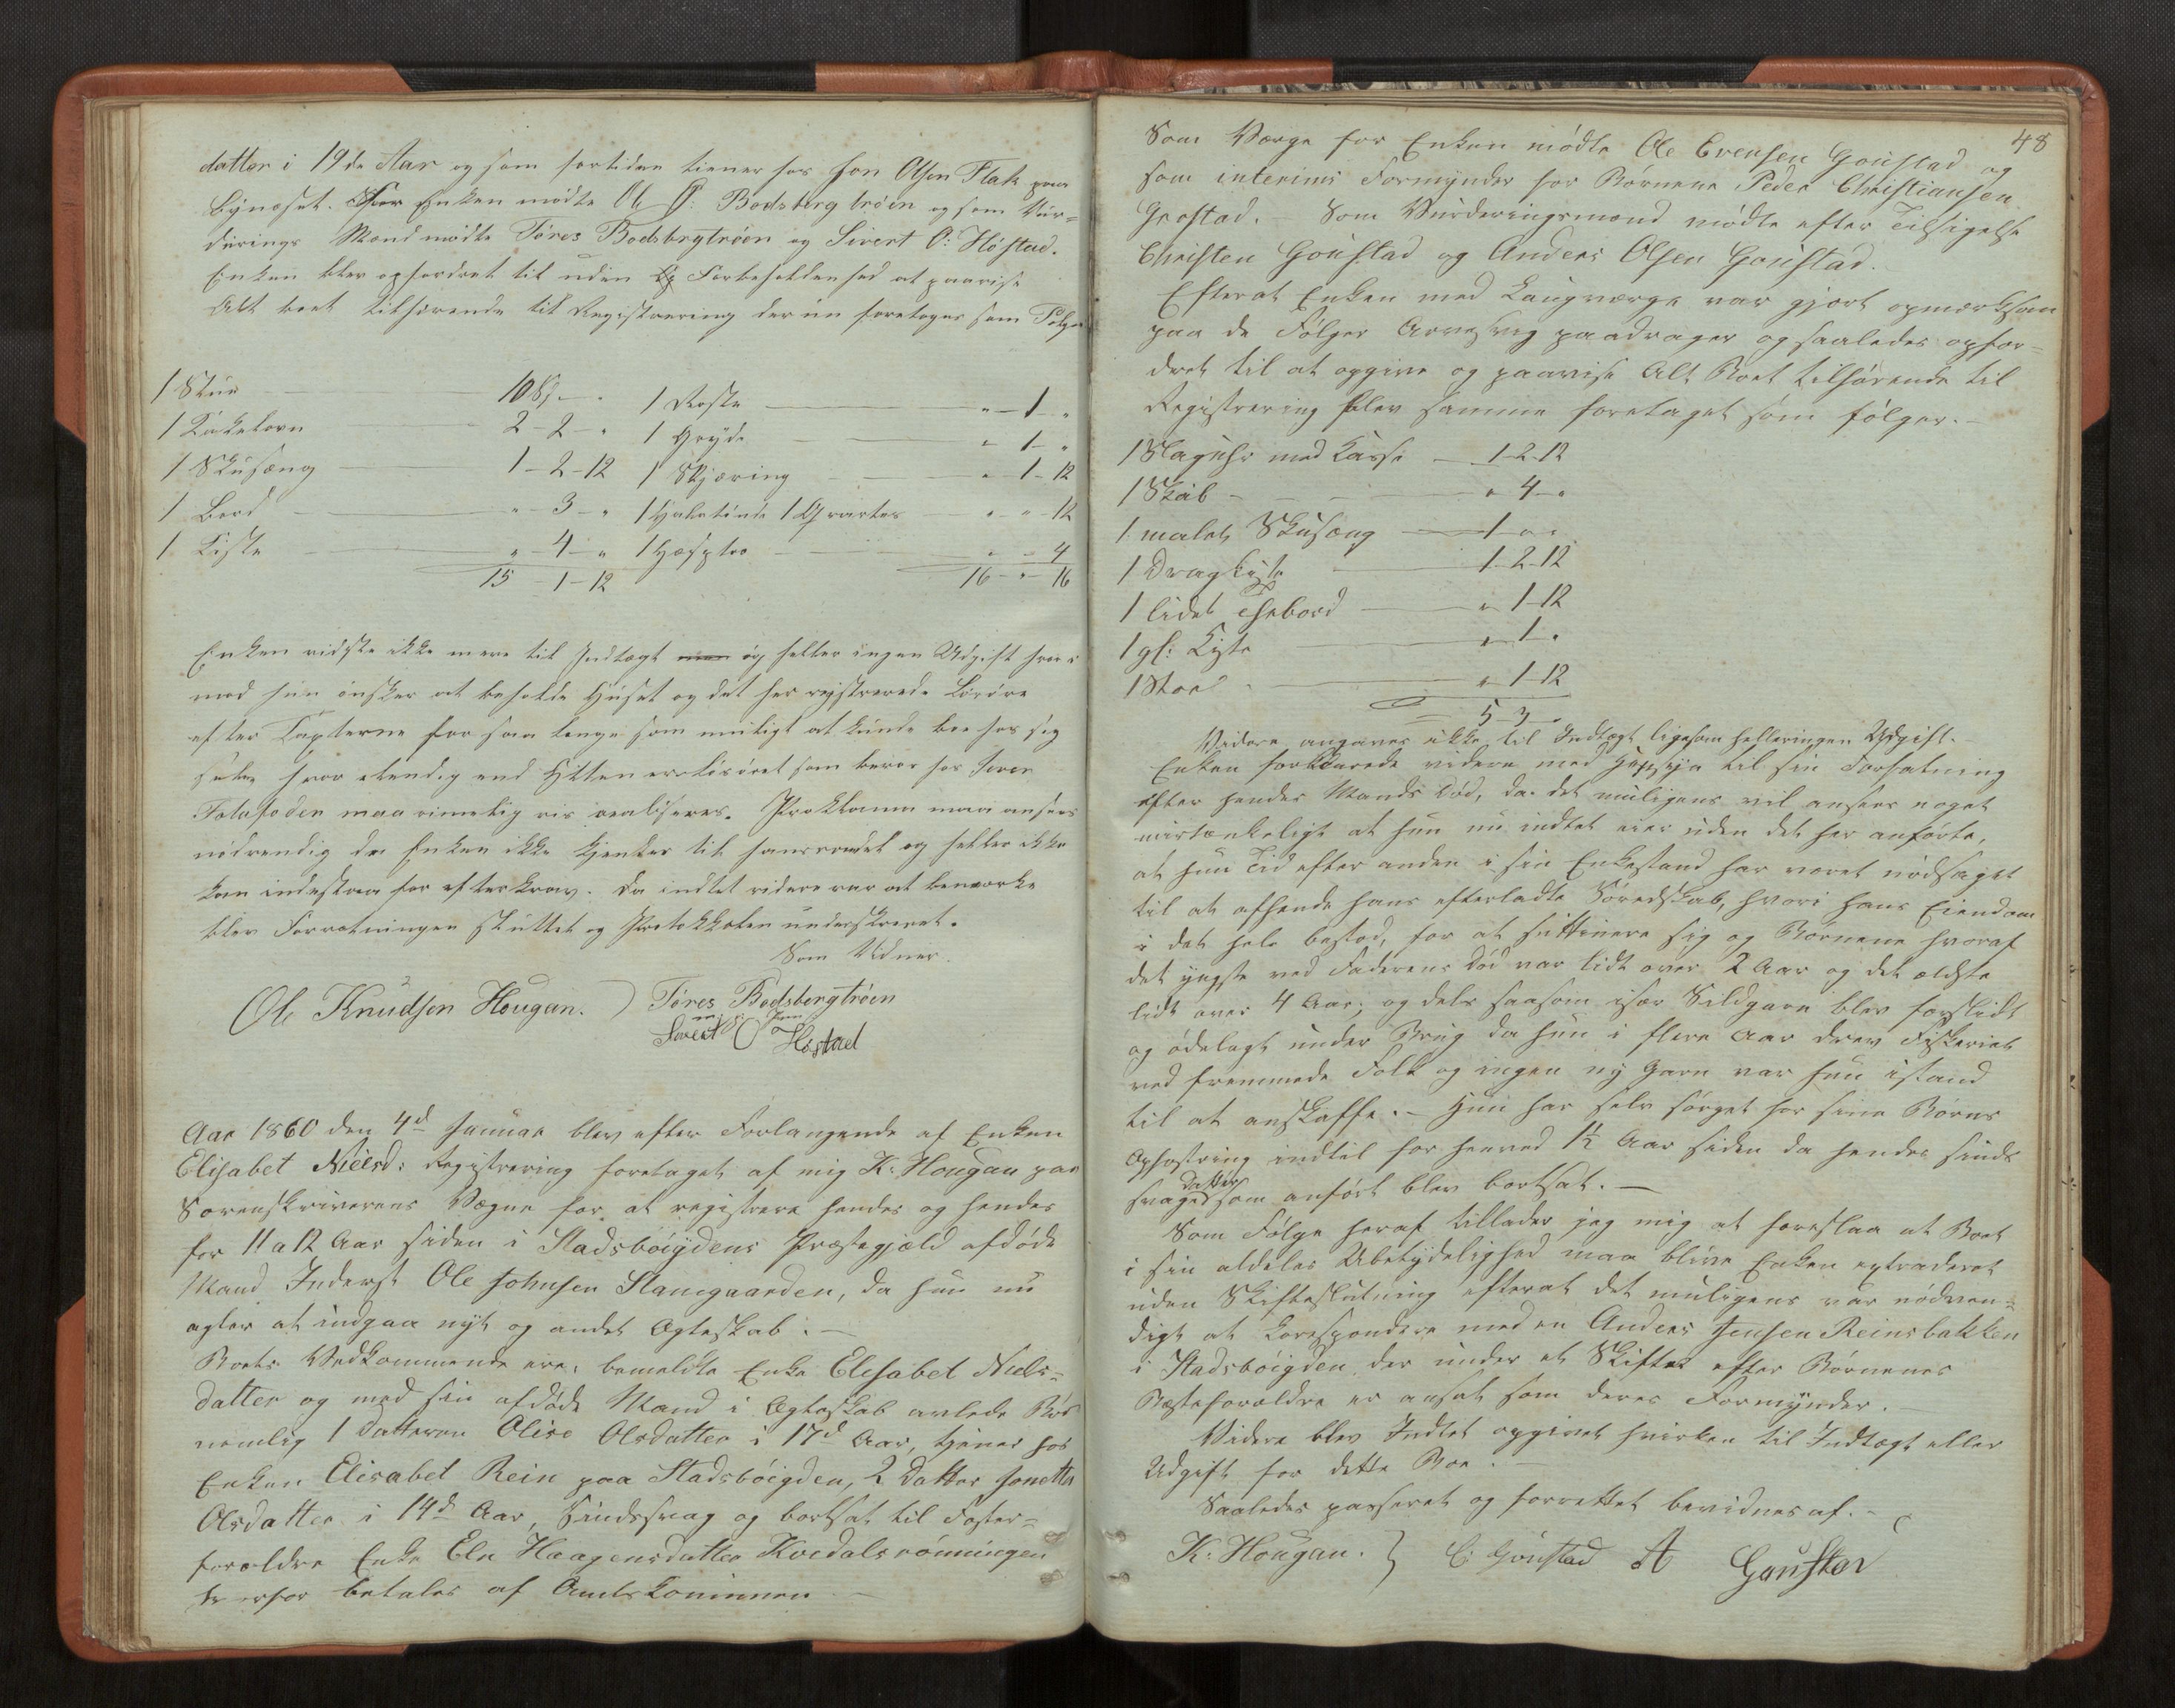 datter i 19de Aar og som fortiden tiener hos Jon Olsen Flak paa
Bynæset. For Enken mødte Ole O: Bodsberg trøen og som Vur=
derings Mænd mødte Tøres Bodsbrgtrøen og Sivert O: Høstad.
Enken blev opfordret til uden Forbeholdenhed at paavise
Alt boet tilhørende til Registrering der nu foretoges som Følger
1 Stue 10 Sp - "
1 Kakelovn 2 - 2 - "
1 Skusæng 1 - 2 - 12
1 Bord " - 3 - "
1 Kiste " - 4 - "
15 1 - 12
1 Roste " - 1 - "
1 Gryde " - 1 - "
1 Skjæring " - 1 - 12
1 Halvtønde 1 Qvarter " - " - 12
1 Hæsptræ " - " - 4
16 - " - 16
Enken vidste ikke mere til Indtægt og heller ingen Udgift hvor i
mod hun ønsker at beholde Huset og det her rejstrerede Løsøre
efter Taxterne for saa lenge som muligt at kunde boe for sig
selv hvor elendig end Hytten er Løsøret som beror hos
maa rimelig vis realiseres. Proklama maa ansees
nødvendig da Enken ikke kjender til hans og heller ikke
kan indestaa for efterkrav. Da indtet videre var at bemærke
blev Forretningen sluttet og Protokkolen underskrevet.
Som Vidner.
Ole Knudsen Hougan. ) Tøres Bodsbergtrøen
Sivert O Høstad
Aar 1860 den 4d Januar blev efter Forlangende af Enken
Elisabet Nielsd: Registrering foretaget af mig K: Hougan paa
Sorenskriverens Vægne for at registrere hendes og hendes
for 11 a 12 Aar siden i Stadsbøigdens Præstegjæld afdøde
Mand Inderst Ole Johnsen Stanegaarden, da hun nu
agter at indgaa nyt og andet Ægteskab. -
Boets Vedkommende ere: bemeldte Enke Elisabet Niels=
datter og med sin afdøde Mand i Ægteskab avlede Bør
nemlig 1 Datteren Olise Olsdatter i 17d Aar, tjener hos
Enken Elisabet Rein paa Stadsbøigden, 2 Datter Jonetta
Olsdatter i 14d Aar, Sindssvag og bortsat til Foster=
forældre Enke Eln Haagensdatter Kvedalsrønningen
derfor betales af Amtskommunen -
48
Som Værge for Enken mødte Ole Evensen Goustad og
som interims Formynder for Børnene Peder Christiansen
Grostad. - Som Vurderingsmænd mødte efter Tilsigelse
Christen Goustad og Anders Olsen Goustad.
Efterat Enken med Laugværge var gjort opmærksom
paa de Følger Arvesvig paadrager og saaledes opfor=
dret til at opgive og paavise Alt Boet tilhørende til
Registrering blev samme foretaget som følger. -
1 Slaguhr med Kasse - 1-2-12
1 Skab - " 4 - "
1 malet Skusæng - 1 - " "
1 Dragkiste 1-2-12
1 lidet Thebord " 1-12
1 gl: Kiste " 1 - "
1 Stoel " 1-12
5-3-
Videre angaves ikke til Indtægt ligesom heller ingen Udgift. -
Enken forklarede videre med Hensyn til sin Forfatning
efter hendes Mands Død, da det muligens vil ansees noget
mistænkeligt at hun nu indtet eier uden det her anførte,
at hun Tid efter anden i sin Enkestand har været nødsaget
til at afhende hans efterladte Søredskab, hvori hans Eiendom
i det hele bestod, for at suttinere sig og Børnene hvoraf
det yngste ved Faderens Død var lidt over 2 Aar og det ældste
lidt over 4 Aar; og dels saasom især Sildgarn blev forslidt
og ødelagt under Brug da hun i flere Aar drev Fiskeriet
ved fremmede Folk og ingen ny Garn var hun istand
til at anskaffe. - Hun har selv sørget for sine Børns
Opfostring indtil for henved 1½ Aar siden da hendes sinds
svage Datter som anført blev bortsat. -
Som Følge heraf tillader jeg mig at foreslaa at Boet
i sin aldeles Ubetydelighed maa blive Enken extraderet
uden Skifteslutning efterat det muligens var nødven=
digt at korespondere med en Anders Jensen Reinsbakken
i Stadsbøigden der under et Skiftet efter Børnenes
Bæsteforældre er ansat som deres Formynder. -
Videre blev Indtet opgivet hverken til Indtægt eller
Udgift for dette Boe. -
Saaledes passeret og forrettet bevidnes af. -
K: Hougan. } C: Goustad A Goustad